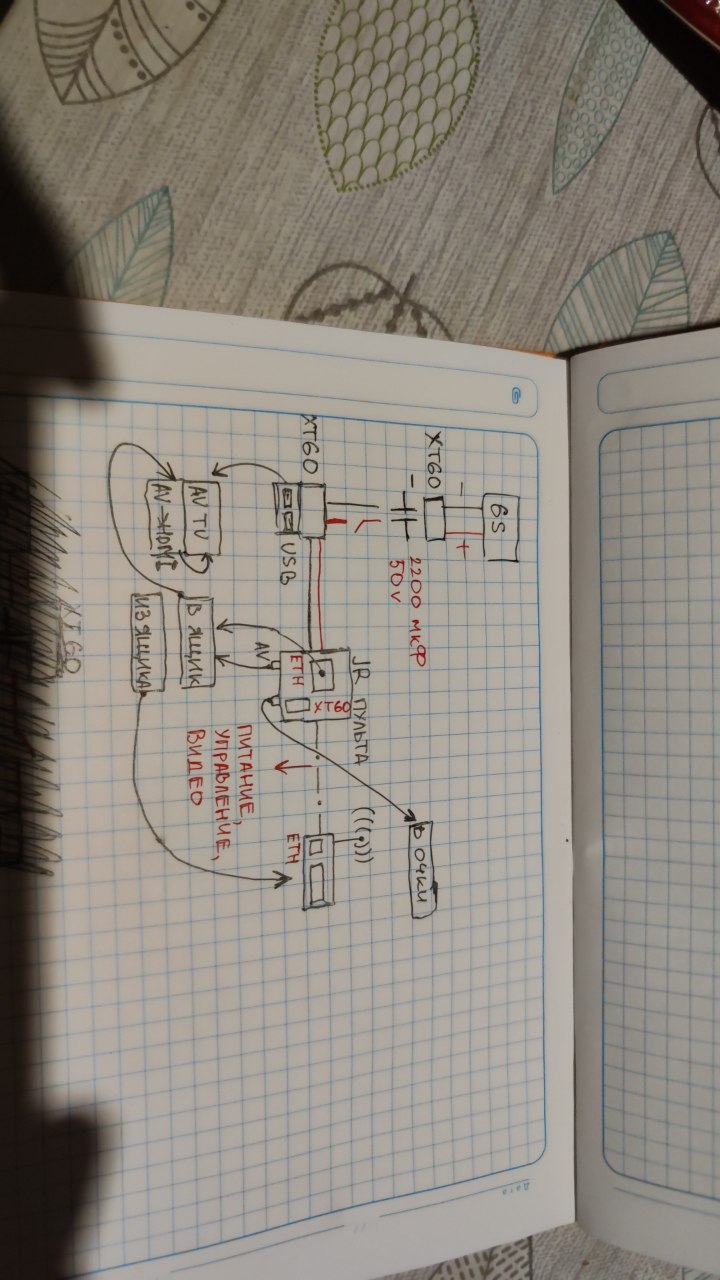 6S
-
+
XT60
-
2200 мкф
50V
XT60
USB
JR ПУЛЬТА
ETH
XT60
AV
В ОЧКИ
ETH
ПИТАНИЕ,
УПРАВЛЕНИЕ,
ВИДЕО
AV TV
AV → HDMI
В ЯЩИК
ИЗ ЯЩИКА
XT60
Дата